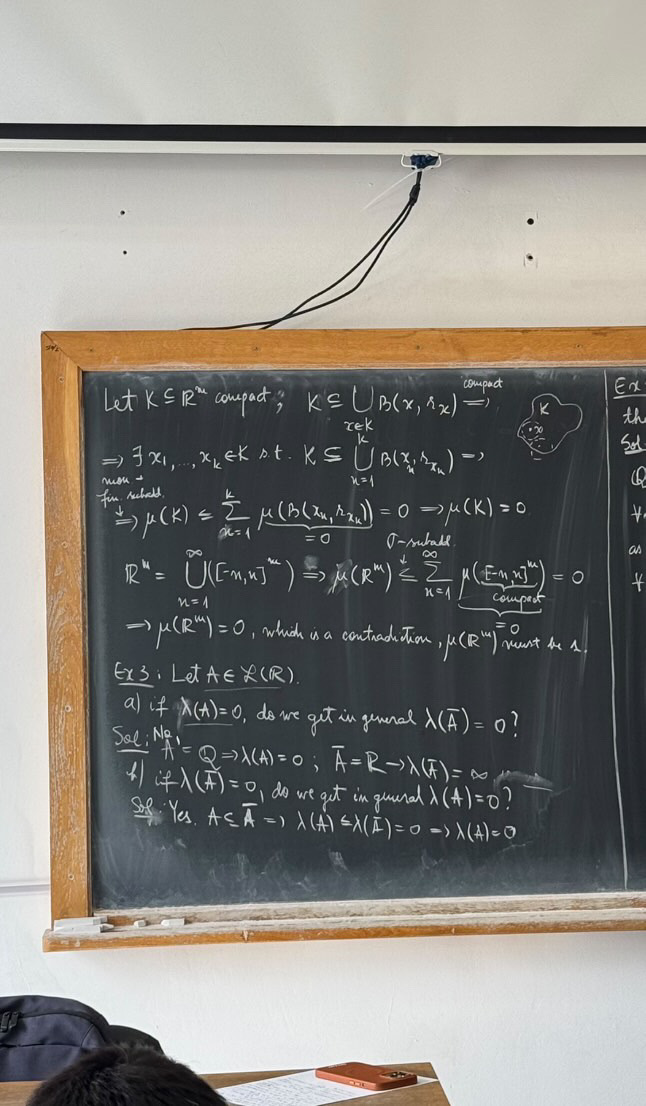 Let K ⊆ ℝᵐ compact; K ⊆ ⋃_{x∈K} B(x, r_x) ⟹^{compact}
K
x
⟹ ∃ x₁, ..., x_k ∈ K s.t. K ⊆ ⋃_{n=1}^{k} B(x_n, r_{x_n}) ⟹
mon +
fin. subadd.
⟹ μ(K) ≤ ∑_{n=1}^{k} μ(B(x_n, r_{x_n})) = 0 ⟹ μ(K) = 0
= 0
σ-subadd.
ℝᵐ = ⋃_{n=1}^{∞} ([-n,n]ᵐ) ⟹ μ(ℝᵐ) ≤ ∑_{n=1}^{∞} μ([-n,n]ᵐ) = 0
compact
= 0
⟹ μ(ℝᵐ) = 0, which is a contradiction, μ(ℝᵐ) must be 1.
Ex 3: Let A ∈ ℒ(ℝ).
a) if λ(A) = 0, do we get in general λ(A̅) = 0?
Sol: No,
A = Q ⟹ λ(A) = 0; A̅ = ℝ → λ(A̅) = ∞
b) if λ(A̅) = 0, do we get in general λ(A) = 0?
Sol: Yes. A ⊆ A̅ ⟹ λ(A) ≤ λ(A̅) = 0 ⟹ λ(A) = 0
Ex
the
Sol
Q
∀
as
∀